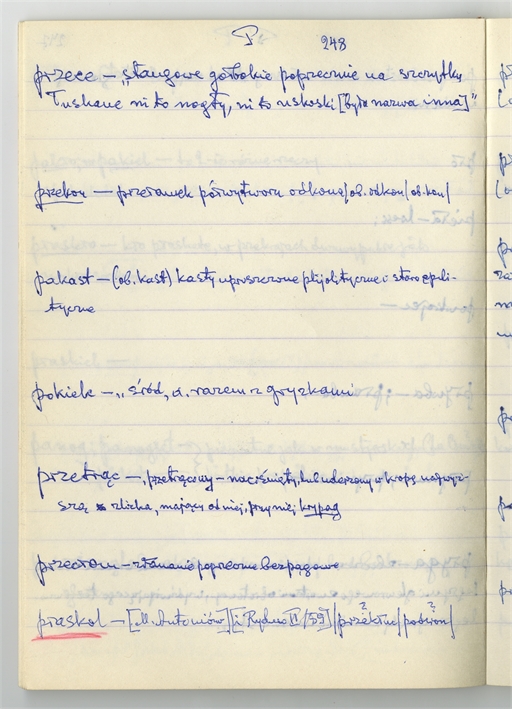 P 248
przece — „stangowe głębokie poprzecznie na szczytku
Łuskane ni to nogty, ni to uskoski [była nazwa inna]”
przekon — przełamek półwytworu odkona/ob. odkon/ob. kon/
pakast — (ob. kast) kasty uproszczone plijolityczne i staroepli-
tyczne
pokiele — „śród, a. razem z gryzkami
przetrąc —, przetrącony – naciśnięty, lub uderzony w kropę najwyż-
szą zlicha, mający od niej, przy niej krypag
przecłom – złamanie poprzeczne bezpagowe
praskol — [M. Antoniów] [i Rydno II/59] /przekłuc/ podwon/
? ?